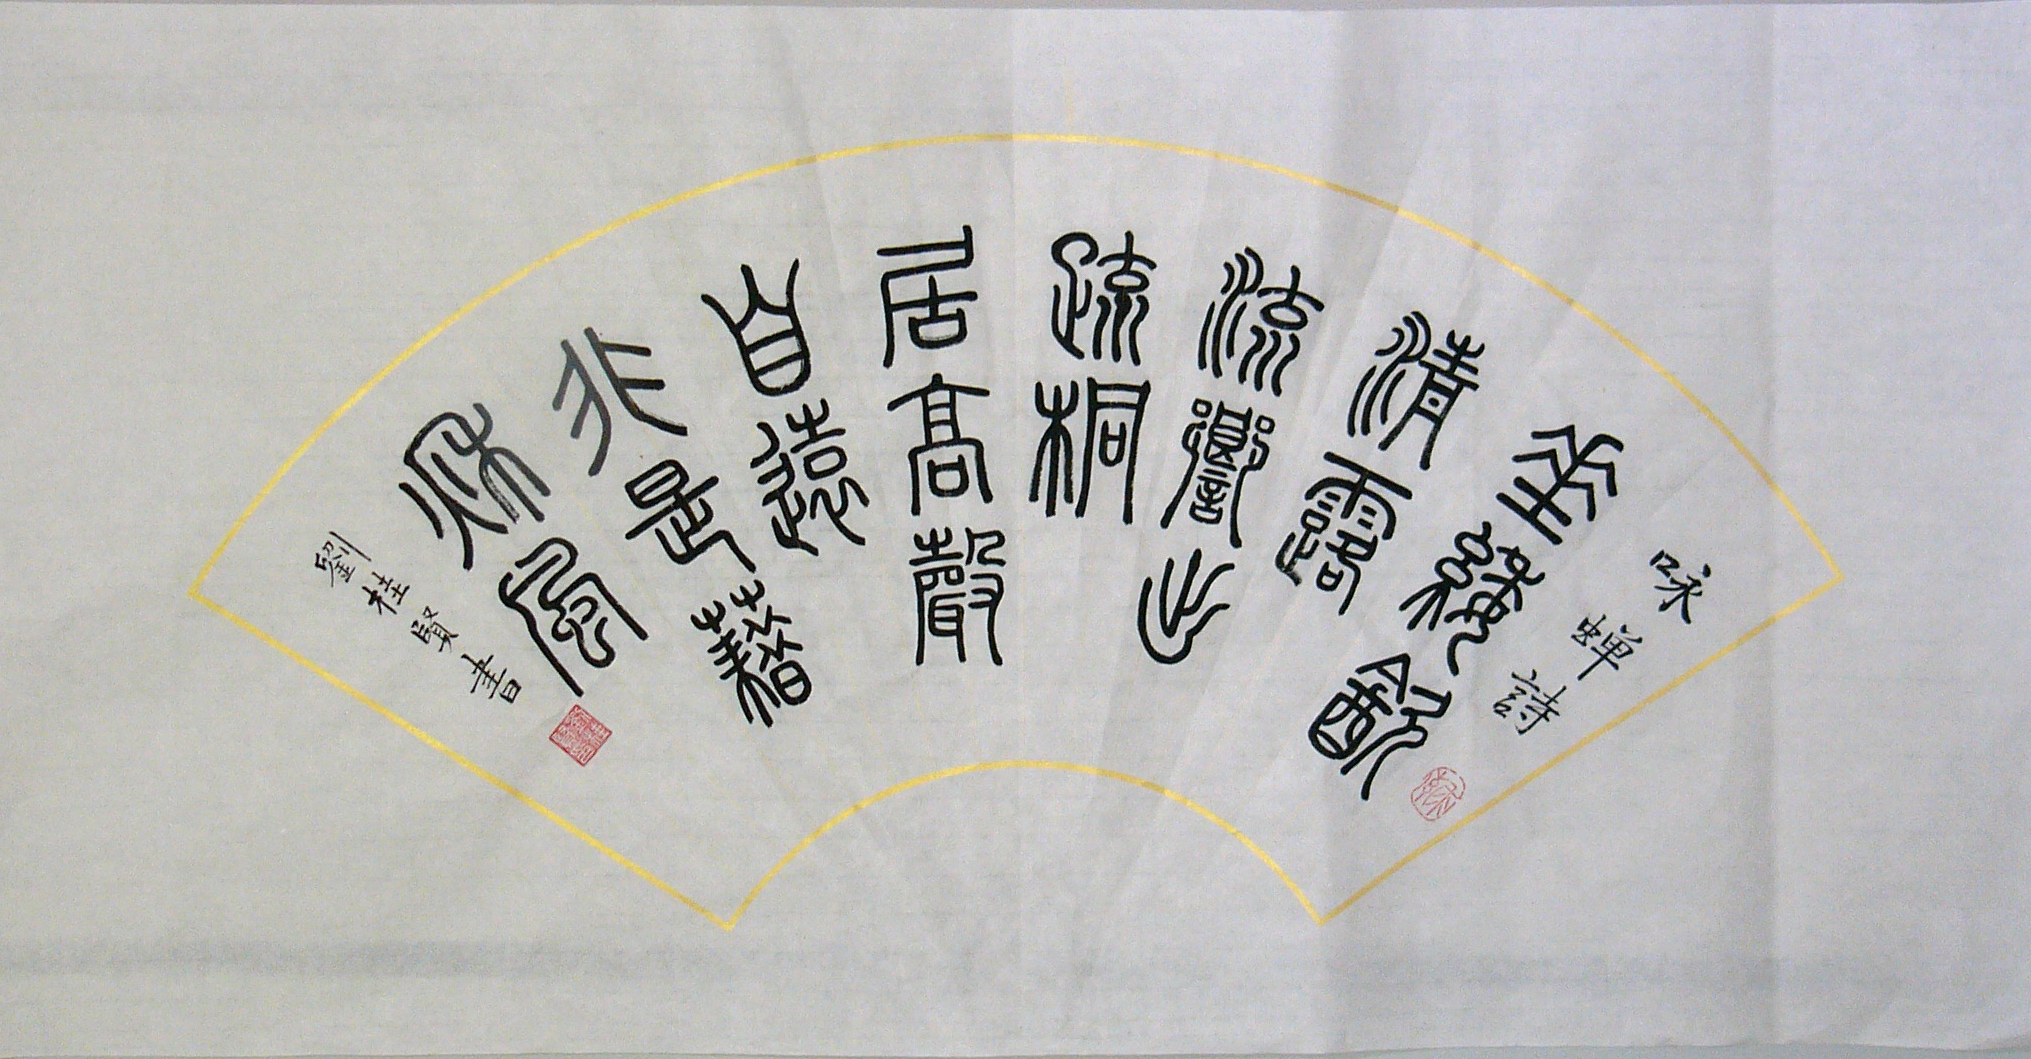 咏蝉詩
垂緌飲
清露
流響出
疏桐
居高聲
自遠
非是藉
秋風
劉桂賢書